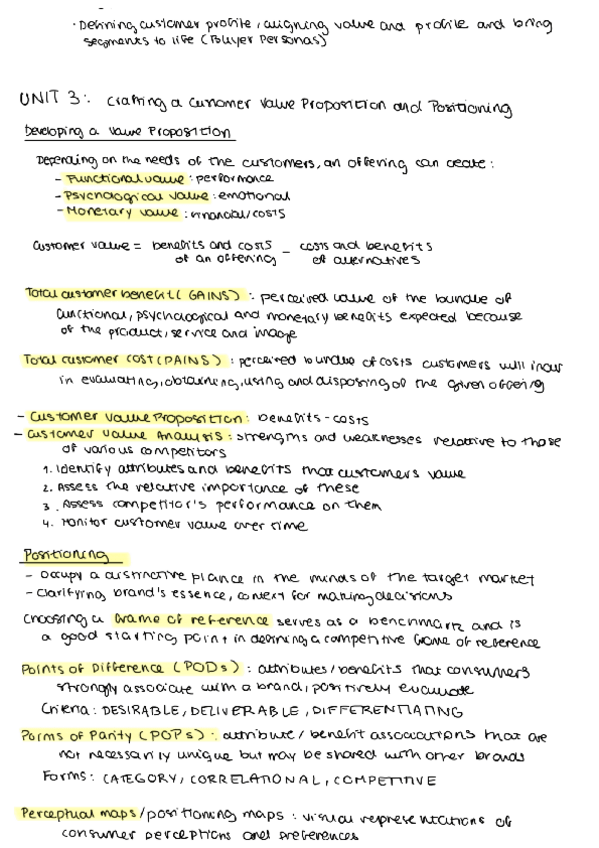 · Defining customer profile, aligning value and profile and bring
segments to life (Buyer Personas)
UNIT 3: Crafting a Customer Value Proposition and Positioning
Developing a Value Proposition
Depending on the needs of the customers, an offering can create:
- Functional value: performance
- Psychological value: emotional
- Monetary value: financial/costs
Customer value = benefits and costs of an offering - costs and benefits of alternatives
Total customer benefit (GAINS): perceived value of the bundle of
functional, psychological and monetary benefits expected because
of the product, service and image
Total customer cost (PAINS): perceived bundle of costs customers will incur
in evaluating, obtaining, using and disposing of the given offering
- Customer Value Proposition: benefits - costs
- Customer Value Analysis: strengths and weaknesses relative to those
of various competitors
1. Identify attributes and benefits that customers value
2. Assess the relative importance of these
3. Assess competitor's performance on them
4. Monitor customer value over time
Positioning
- occupy a distinctive place in the minds of the target market
- clarifying brand's essence, context for making decisions
Choosing a frame of reference serves as a benchmark and is
a good starting point in defining a competitive frame of reference
Points of Difference (PODs): attributes/benefits that consumers
strongly associate with a brand, positively evaluate
Criteria: DESIRABLE, DELIVERABLE, DIFFERENTIATING
Points of Parity (POPs): attribute/benefit associations that are
not necessarily unique but may be shared with other brands
Forms: CATEGORY, CORRELATIONAL, COMPETITIVE
Perceptual maps/positioning maps: visual representations of
consumer perceptions and preferences